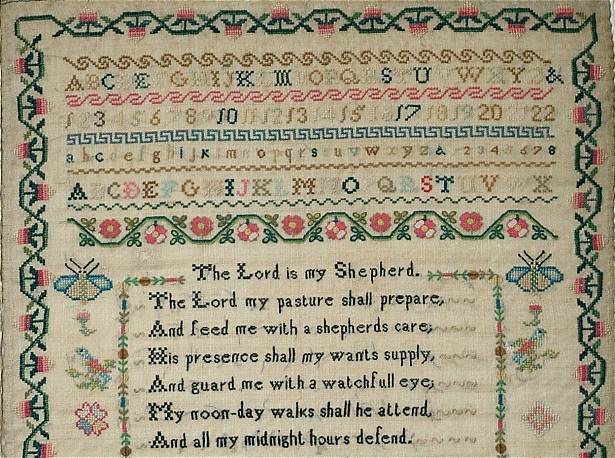 A B C E G H I J K M O P Q R S U W X Y Z &
1 2 3 4 5 6 7 8 9 10 11 12 13 14 15 17 18 19 20 22
a b c d e f g h i j k l m n o p q r s u v w x y z a 2 3 4 5 6 7 8
A B C D E F G H I J K L M N O Q R S T U V X
The Lord is my Shepherd.
The Lord my pasture shall prepare,
And feed me with a shepherds care;
His presence shall my wants supply,
And guard me with a watchfull eye;
My noon-day walks shall he attend,
And all my midnight hours defend.